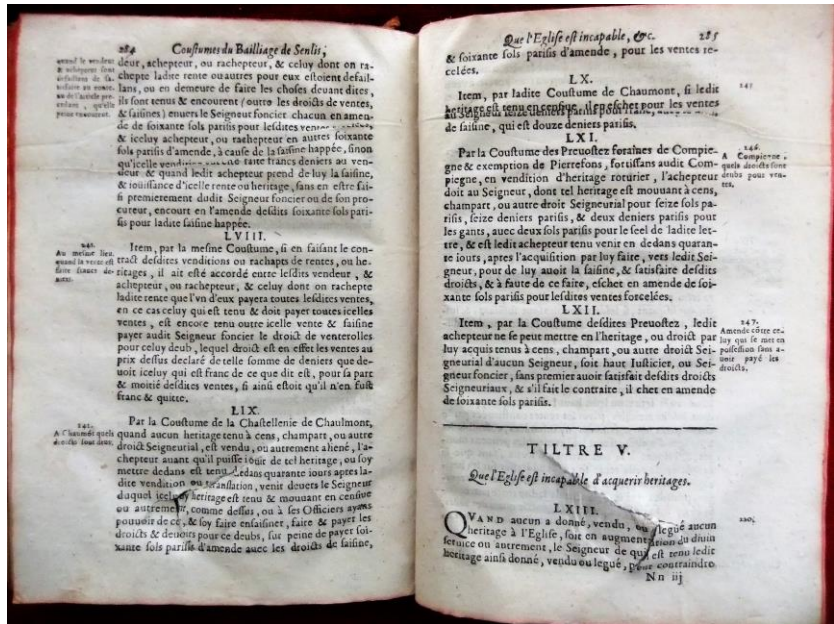 284 Coustumes du Bailliage de Senlis,
quand le vendeur
& achepteur sont
defaillans de sa-
tisfaire au conte-
nu de l'article pre-
cedent, qu'elle
peine encourent.
deur, achepteur, ou rachepteur, & celuy dont on ra-
chepte ladite rente ou autres pour eux estoient defail-
lans, ou en demeure de faire les choses deuant dites,
ils sont tenus & encourent (outre les droicts de ventes,
& saisines) enuers le Seigneur foncier chacun en amen-
de de soixante sols parisis pour lesdites
& iceluy achepteur, ou rachepteur en autres soixante
sols parisis d'amende, à cause de la saisine happée, sinon
qu'icelle faite francs deniers au ven-
deur & quand ledit achepteur prend de luy la saisine,
& iouissance d'icelle rente ou heritage, sans en estre sai-
si premierement dudit Seigneur foncier ou de son pro-
cureur, encourt en l'amende desdits soixante sols pari-
sis pour ladite saisine happée.
LVIII.
241.
Au mesme lieu,
quand la vente est
faite francs de-
niers.
Item, par la mesme Coustume, si en faisant le con-
tract desdites venditions ou rachapts de rentes, ou he-
ritages, il ait esté accordé entre lesdits vendeur, &
achepteur, ou rachepteur, & celuy dont on rachepte
ladite rente que l'vn d'eux payera toutes lesdites ventes,
en ce cas celuy qui est tenu & doit payer toutes icelles
ventes, est encore tenu outre icelle vente & saisine
payer audit Seigneur foncier le droict de venterolles
pour celuy deub, lequel droict est en effet les ventes au
prix dessus declaré de telle somme de deniers que de-
uoit iceluy qui est franc de ce que dit est, pour sa part
& moitié desdites ventes, si ainsi estoit qu'il n'en fust
franc & quitte.
LIX.
242.
A Chaumõt quels
droicts sont deus.
Par la Coustume de la Chastellenie de Chaulmont,
quand aucun heritage tenu à cens, champart, ou autre
droict Seigneurial, est vendu, ou autrement aliené, l'a-
chepteur auant qu'il puisse iouir de tel heritage, ou soy
mettre dedans est tenu dedans quarante iours apres la-
dite vendition ou translation, venir deuers le Seigneur
duquel iceluy heritage est tenu & mouuant en censiue
ou autrement, comme dessus, ou à ses Officiers ayans
pouuoir de ce, & soy faire ensaisiner, faire & payer les
droicts & deuoirs pour ce deubs, sur peine de payer soi-
xante sols parisis d'amende auec les droicts de saisine,
Que l'Eglise est incapable, &c. 285
& soixante sols parisis d'amende, pour les ventes re-
celées.
LX.
Item, par ladite Coustume de Chaumont, si ledit
heritage est tenu en censiue, il en eschet pour les ventes
au Seigneur seize deniers parisis pour
de saisine, qui est douze deniers parisis.
LXI.
246.
A Compiegne,
quels droicts sont
deubs pour ven-
tes.
Par la Coustume des Preuostez foraines de Compie-
gne & exemption de Pierrefons, sortissans audit Com-
piegne, en vendition d'heritage roturier, l'achepteur
doit au Seigneur, dont tel heritage est mouuant à cens,
champart, ou autre droit Seigneurial pour seize sols pa-
risis, seize deniers parisis, & deux deniers parisis pour
les gants, auec deux sols parisis pour le seel de ladite let-
tre, & est ledit achepteur tenu venir en dedans quaran-
te iours, apres l'acquisition par luy faite, vers ledit Sei-
gneur, pour de luy auoir la saisine, & satisfaire desdits
droicts, & à faute de ce faire, eschet en amende de soi-
xante sols parisis pour lesdites ventes forcelées.
LXII.
247.
Amende cõtre ce-
luy qui se met en
possession sans a-
uoir payé les
droicts.
Item, par la Coustume desdites Preuostez, ledit
achepteur ne se peut mettre en l'heritage, ou droict par
luy acquis tenus à cens, champart, ou autre droict Sei-
gneurial d'aucun Seigneur, soit haut Iusticier, ou Sei-
gneur foncier, sans premier auoir satisfait desdits droicts
Seigneuriaux, & s'il fait le contraire, il chet en amende
de soixante sols parisis.
TILTRE V.
Que l'Eglise est incapable d'acquerir heritages.
LXIII.
QVAND aucun a donné, vendu, ou legué aucun
heritage à l'Eglise, soit en augmentation du diuin
seruice ou autrement, le Seigneur de qui est tenu ledit
heritage ainsi donné, vendu ou legué, pour contraindre
N n iij